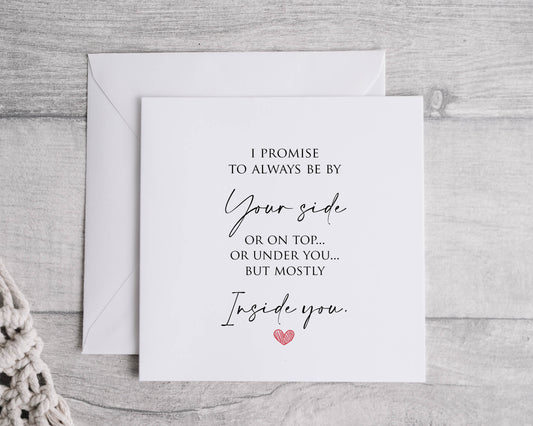 I PROMISE
TO ALWAYS BE BY
Your side
OR ON TOP...
OR UNDER YOU...
BUT MOSTLY
Inside you.